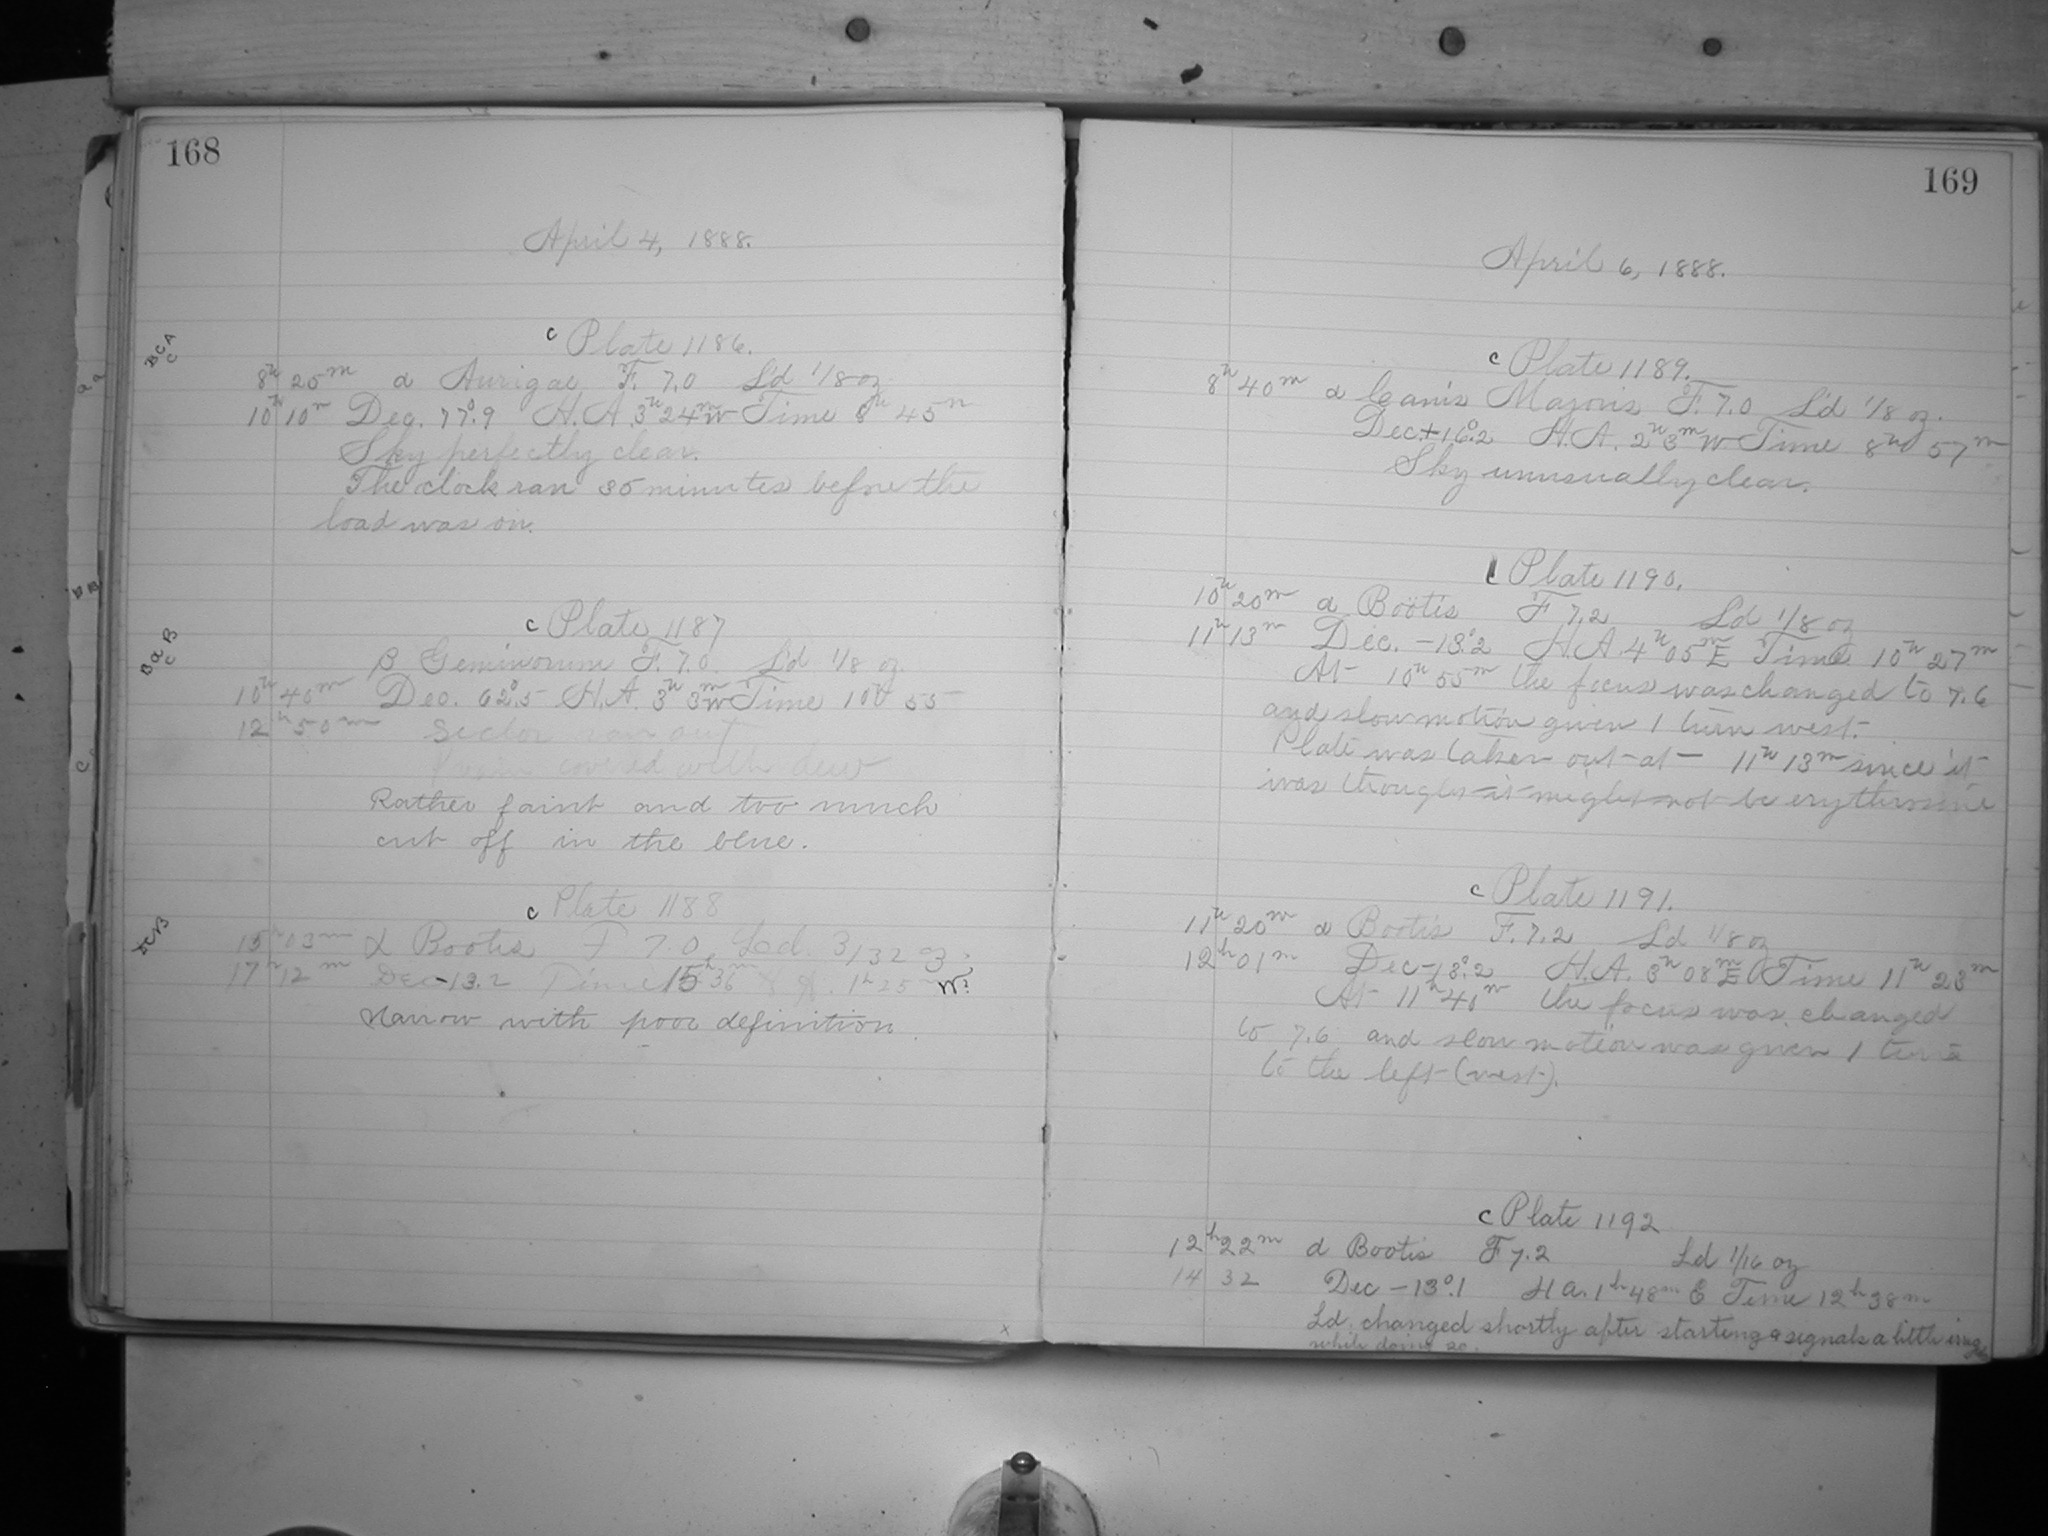 168
April 4, 1888.
BCA
C
c Plate 1186.
8h 25m α Aurigae F. 7.0 L'd 1/8 oz
10h 10m Dec. 77°.9 H.A. 3h 24m W Time 8h 45m
Sky perfectly clear.
The clock ran 35 minutes before the
load was on.
BaB
C
c Plate 1187
β Geminorum F. 7.0 L'd 1/8 oz.
10h 40m Dec. 62°.5 H.A. 3h 3m W Time 10h 55
12h 50m Sector ran out
covered with dew
Rather faint and too much
cut off in the blue.
c Plate 1188
15h 03m α Bootis F 7.0 Ld. 3/32 oz.
17h 12m Dec -13.2 Time 15h 36m H. 1h 25 W?
Narrow with poor definition
169
April 6, 1888.
c Plate 1189.
8h 40m α Canis Majoris F. 7.0 L'd 1/8 oz.
Dec. +16°.2 H.A. 2h 3m W Time 8h 57m
Sky unusually clear.
Plate 1190.
10h 20m α Boötis F 7.2 Ld 1/8 oz
11h 13m Dec. -13°.2 H.A. 4h 05m E Time 10h 27m
At 10h 55m the focus was changed to 7.6
and slow motion given 1 turn west.
Plate was taken out at 11h 13m since it
was thought it might not be erythrosine
c Plate 1191.
11h 20m α Bootis F. 7.2 Ld 1/8 oz
12h 01m Dec -13°.2 H.A. 3h 08m E Time 11h 23m
At 11h 40m the focus was changed
to 7.6 and slow motion was given 1 turn
to the left (west).
c Plate 1192
12h 22m α Bootis F 7.2 Ld 1/16 oz
14 32 Dec -13°.1 H a. 1h 48m E Time 12h 38m
Ld. changed shortly after starting & signals a little
while doing so.